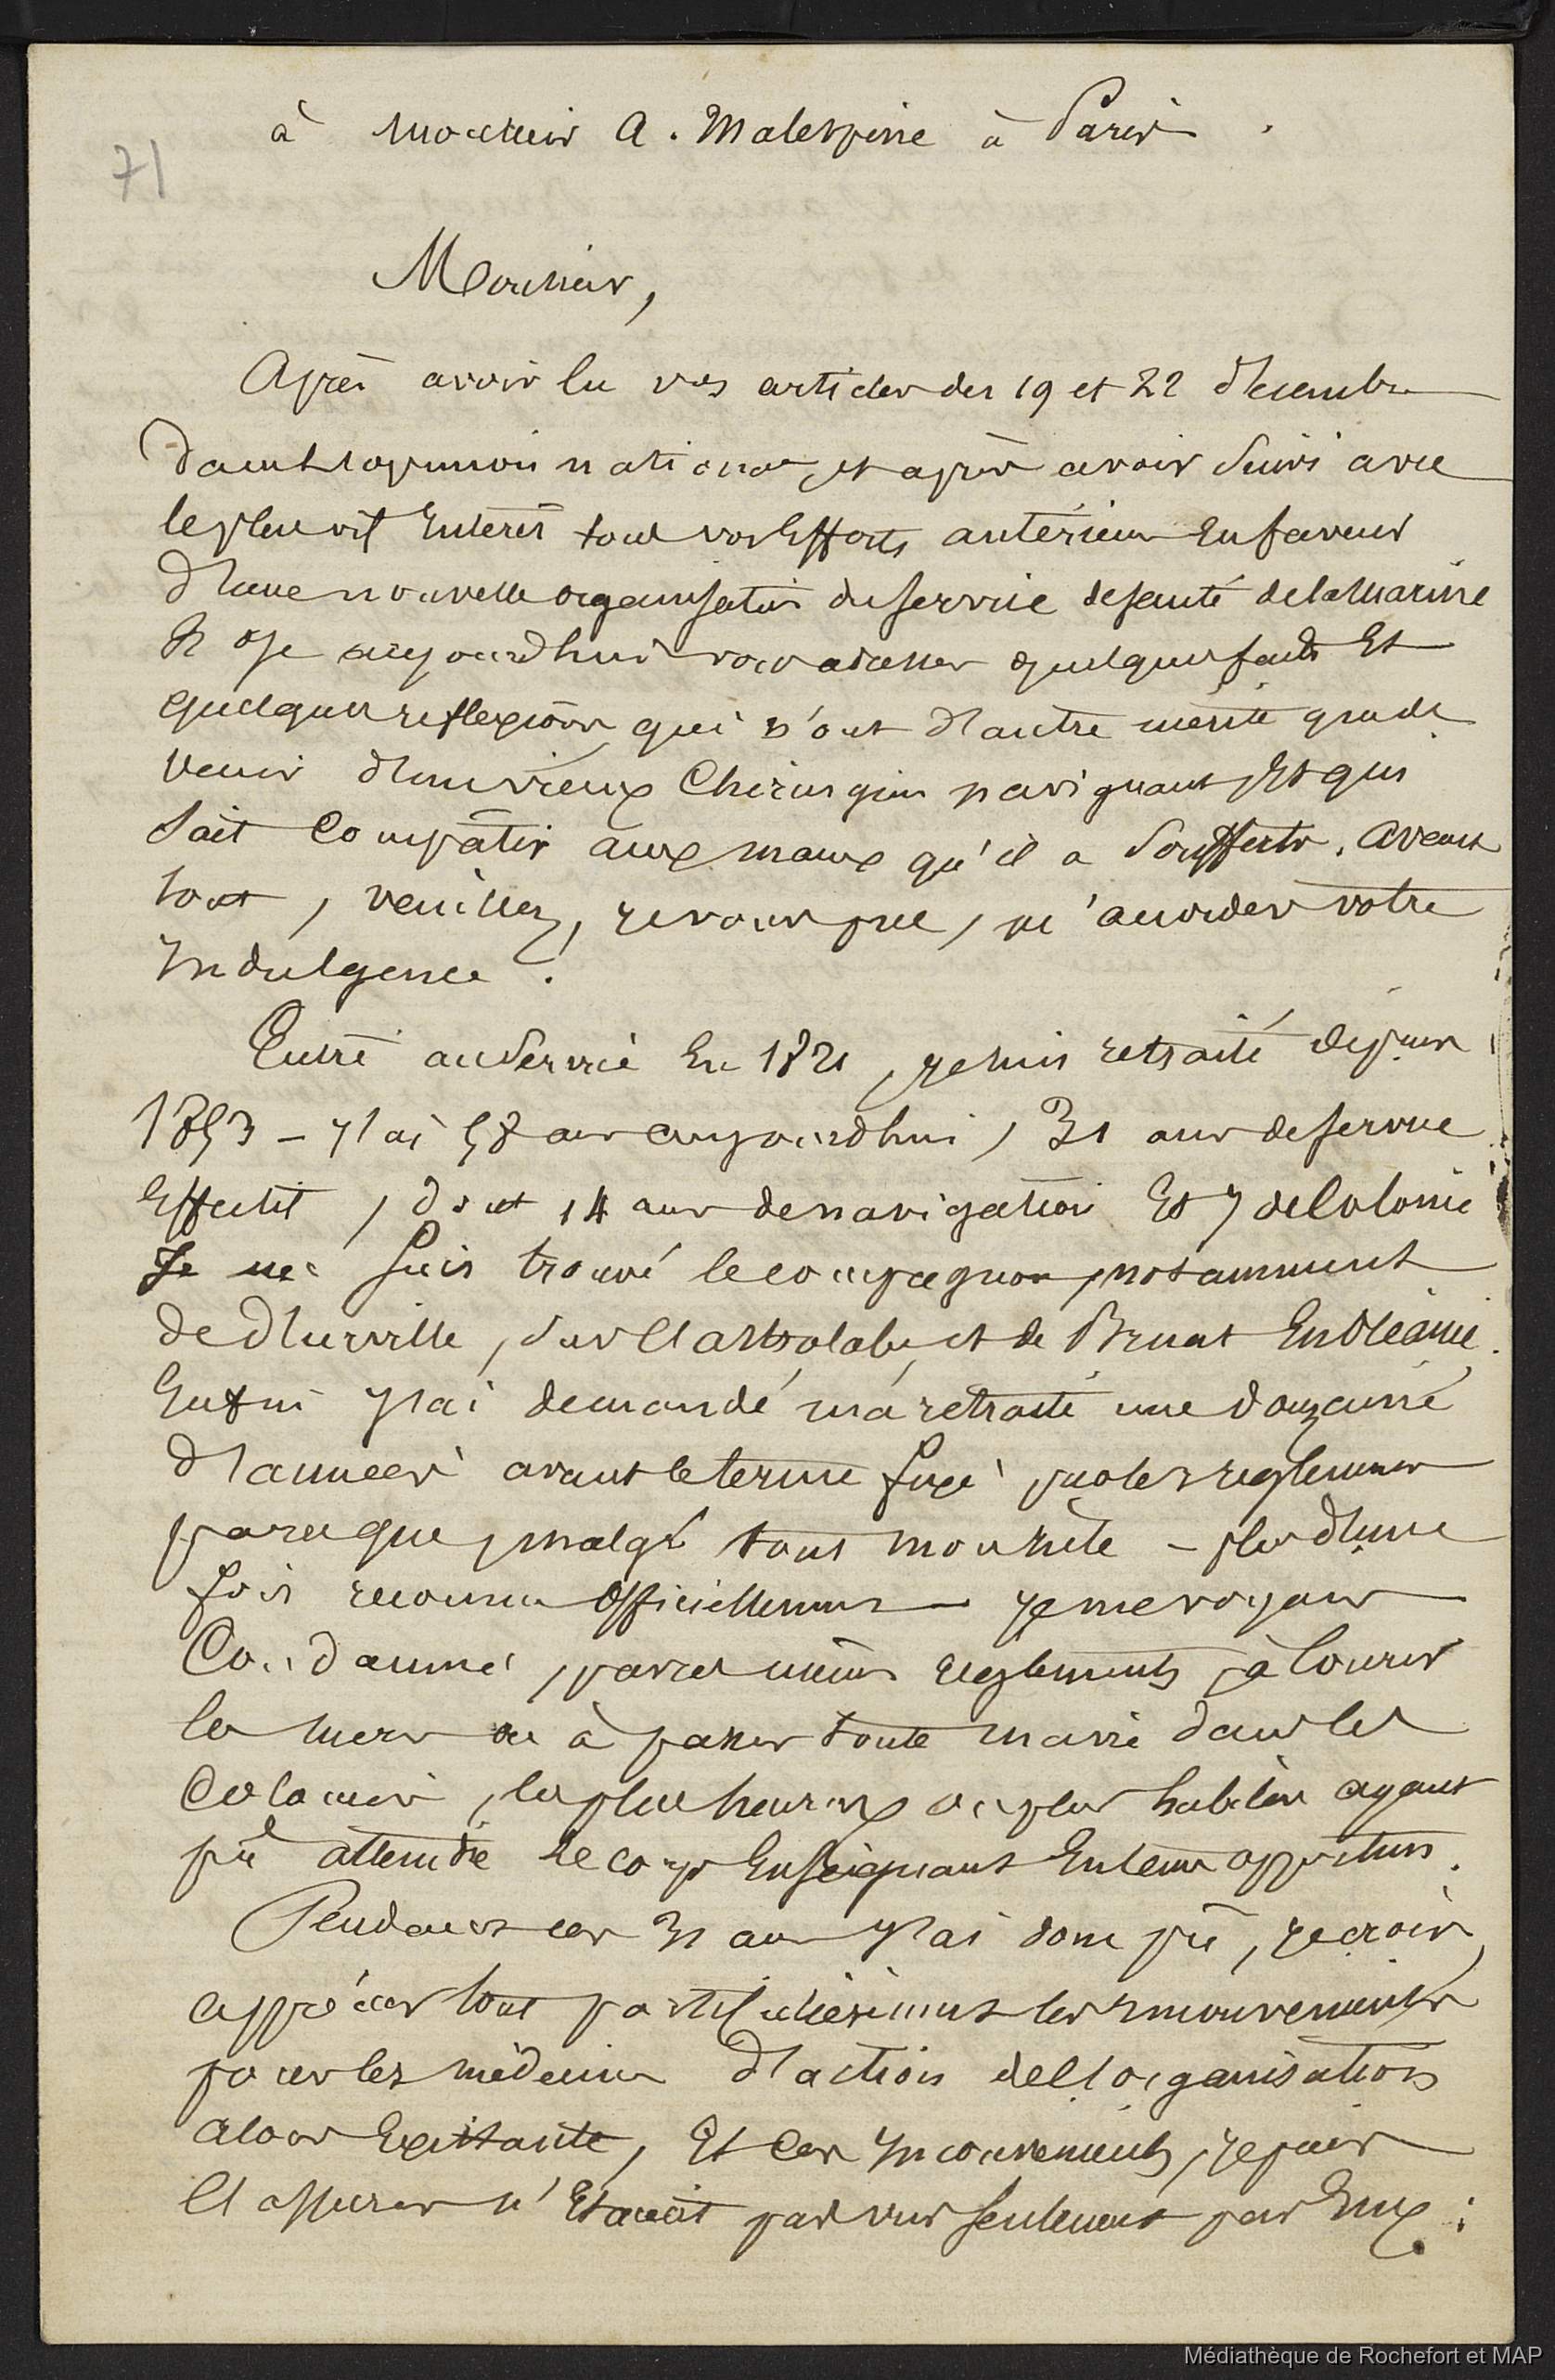 71
à monsieur A. Malespine à Paris.
Monsieur,
Après avoir lu vos articles des 19 et 22 décembre
dans l'opinion nationale, et après avoir suivi avec
le plus vif Intérêt tous vos Efforts antérieurs En faveur
d'une nouvelle organisation du service de santé de la Marine
J'ose aujourd'hui vous adresser quelques faits Et
quelques reflexions qui n'ont d'autre mérite que de
venir d'un vieux Chirurgien navigant, Et qui
sait Compâtir aux maux qu'il a soufferts. Avant
tout, veuillez, je vous prie, m'accorder votre
Indulgence.
Entré au service En 1821, je suis retraité depuis
1853 - J'ai 58 ans aujourd'hui, 31 ans de service
Effectif, dont 14 ans de navigation Et 7 de Colonie
Je me suis trouvé le compagnon, notamment
de d'Urville, sur l'Astrolabe, et de Bruat En Océanie.
Enfin j'ai demandé ma retraite une douzaine
d'années avant le terme fixé par les reglements
parceque, malgré tout mon zèle - plus d'une
fois reconnu Officiellement - je me voyais
Condamné, par ces mêmes règlements, à Courir
les mers ou à passer toute ma vie dans les
Colonies, les plus heureux ou plus habiles ayant
pû atteindre le corps Enseignant En temps opportun.
Pendant ces 31 ans j'ai donc pû, je crois,
apprécier tout particulièrement les inconvenients
pour les médecins d'action de l'organisation
alors Existante, Et Ces Inconvenients, je puis
l'assurer n'Etaient pas vus seulement par Eux :
Médiathèque de Rochefort et MAP